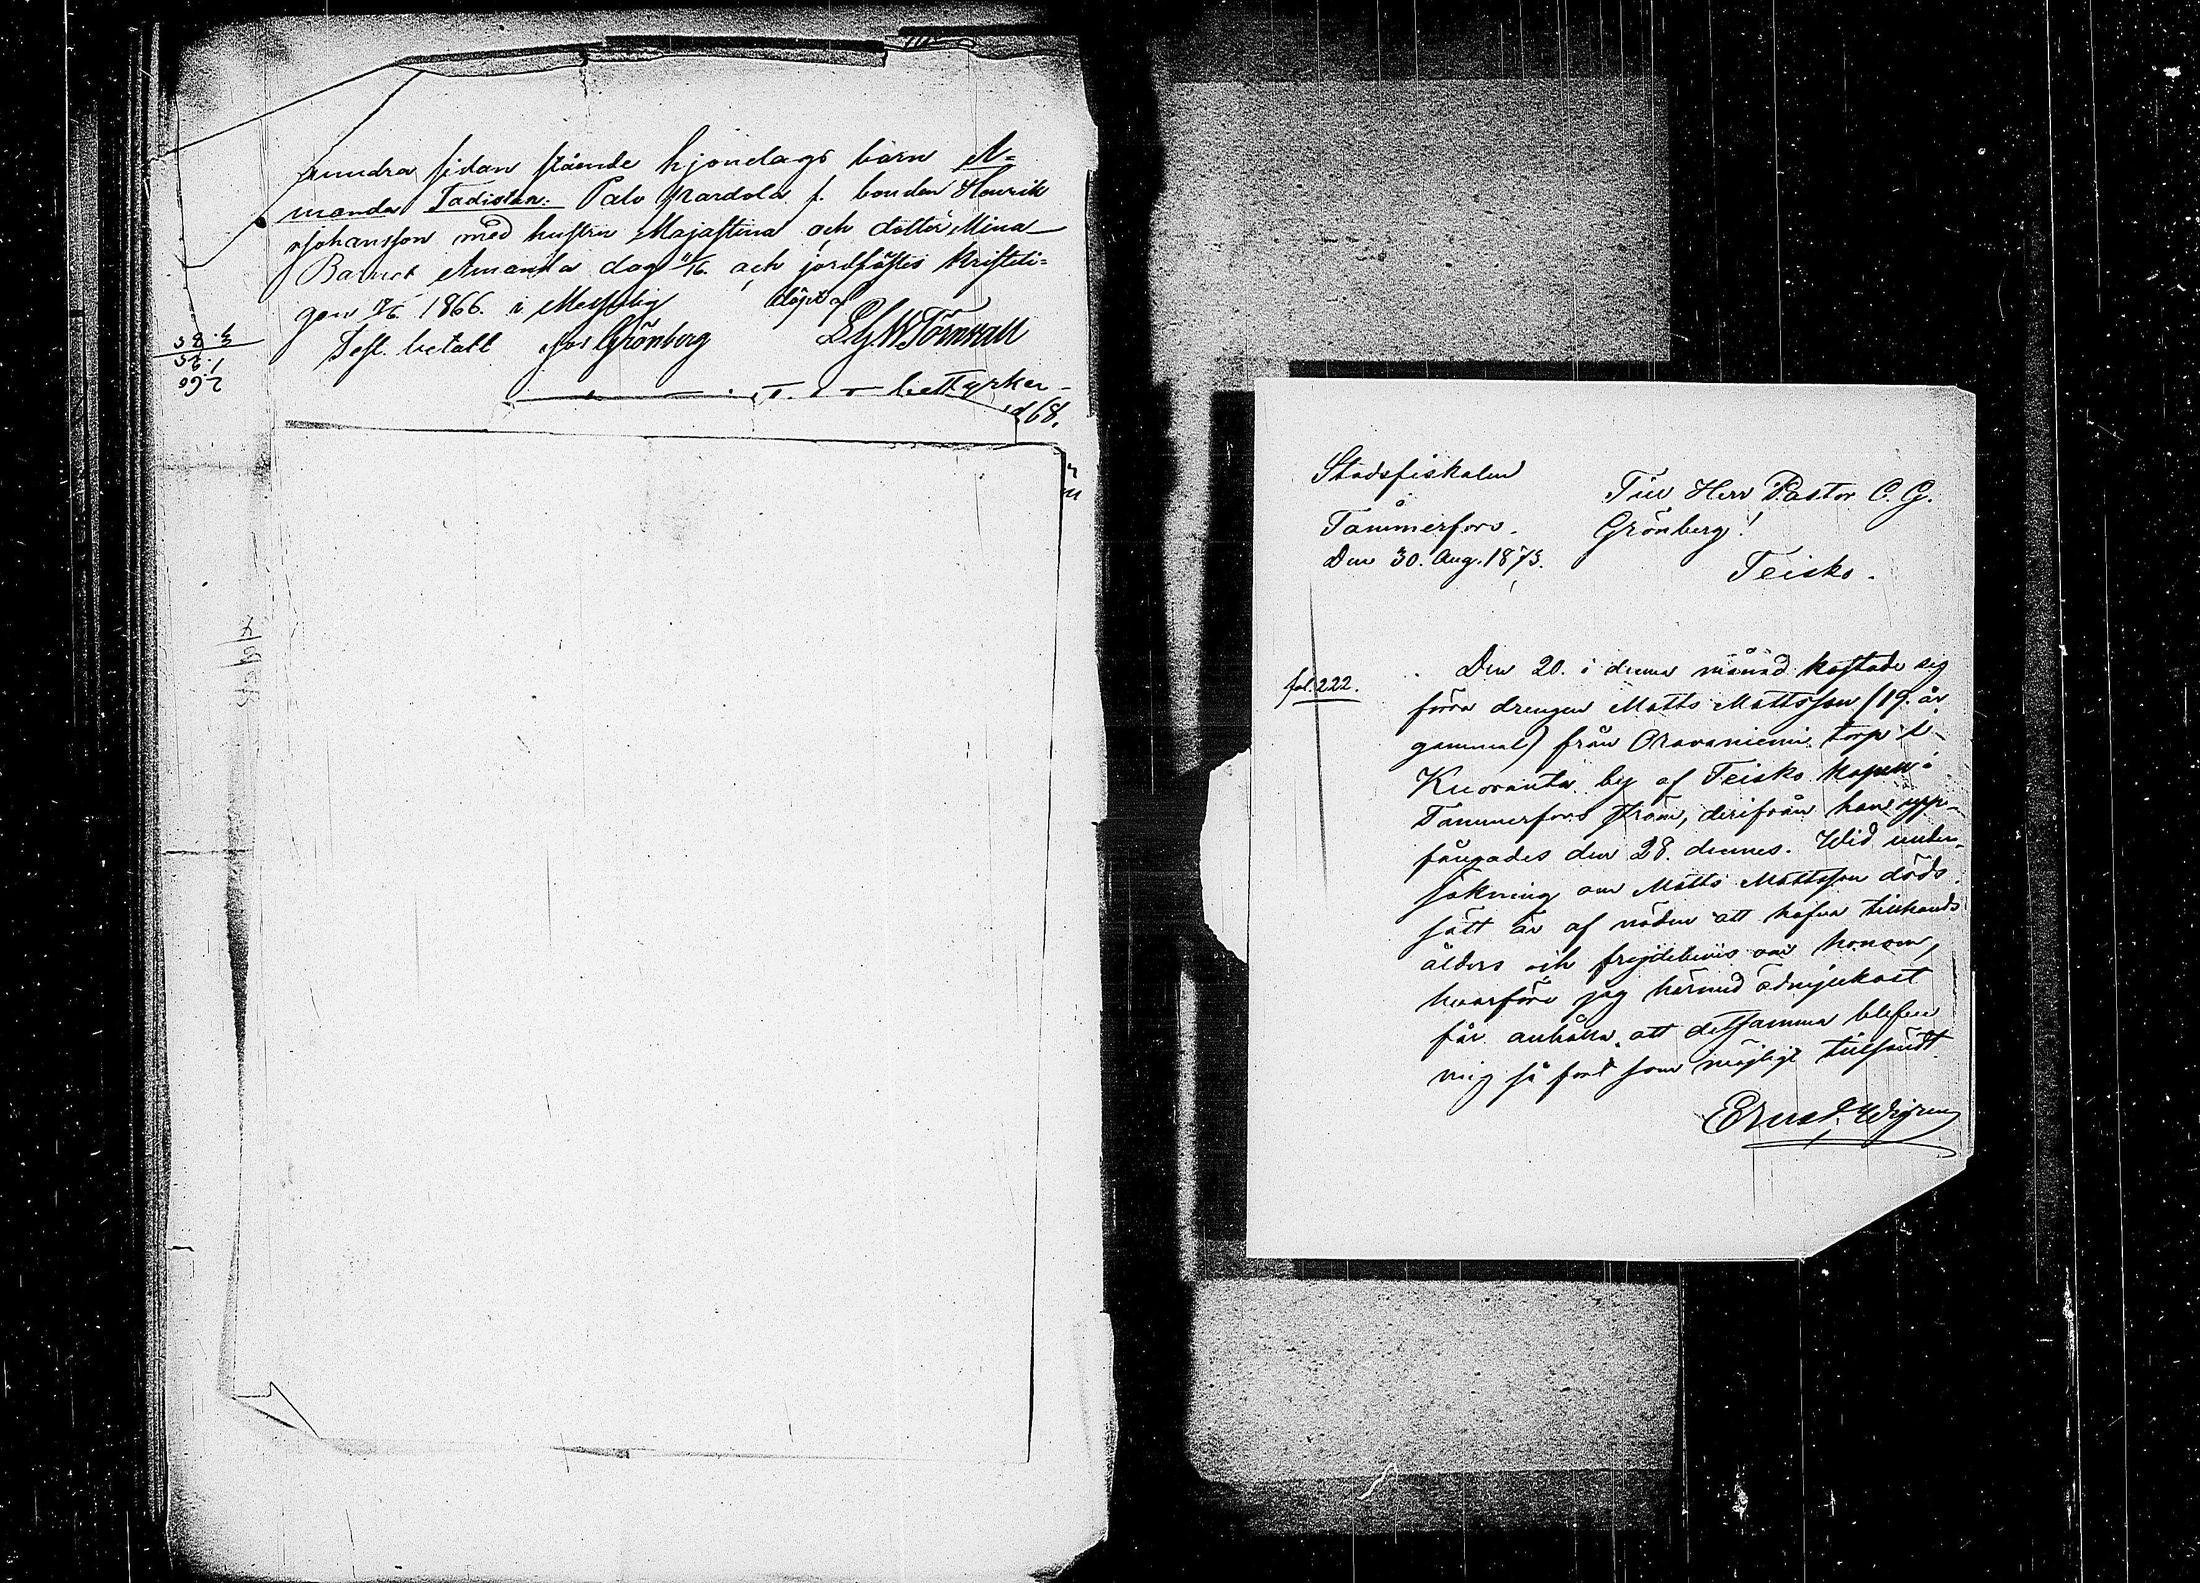 andra sidan stående hjonelags barn A=
manda Fadistan: Palo Mardola f. bonden Henrik
Johansson med hustru Majastina och dotter Mina
Barnet Amanda dog 11/6 och jordfästes kristeli=
gen 17/6 1866. i Messuby döpt af
Test. betalt Grönberg Törnwall
bettyrker
68.
3.85
1.25
2.60
Stadsfiskalen
i
Tammerfors.
Den 30. Aug. 1873.
Till Herr Pastor C. G.
Grönberg!
Teisko.
fol. 222.
Den 20. i denna månad kastade sig
förra drengen Matts Mattsson (19. år
gammal) från Oravaniemi torp i
Kuoranta by af Teisko kapell i
Tammerfors ström, derifrån han upp-
fångades den 28. dennes. Wid under-
sökning om Matts Mattsson döds
sätt är af nöden att hafva tillhands
ålders och frejdebevis om honom,
hvarföre jag härmed ödmjukast
får anhålla, att detsamma blefve
mig så fort som möjligt tillsändt.
Ernst Wigren